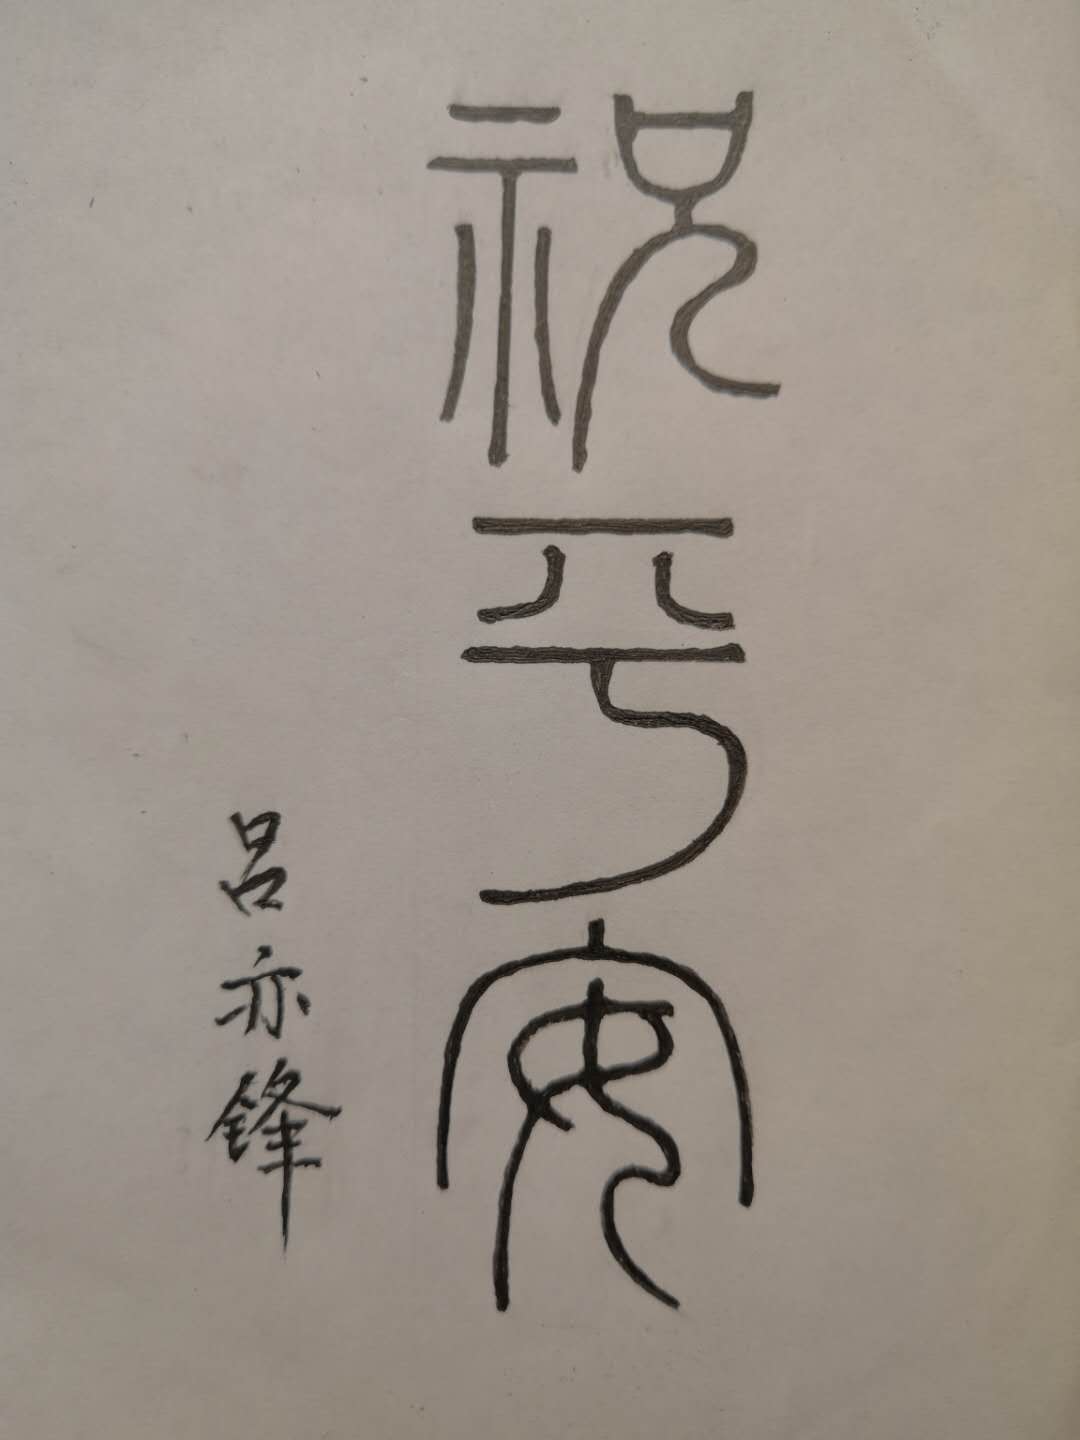 祝平安
吕亦锋